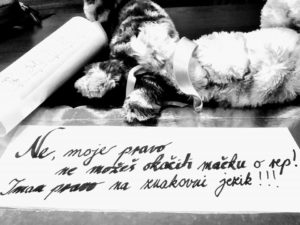 Ne, moje pravo
ne možeš okačiti mačku o rep!
Imam pravo na znakovni jezik!!!